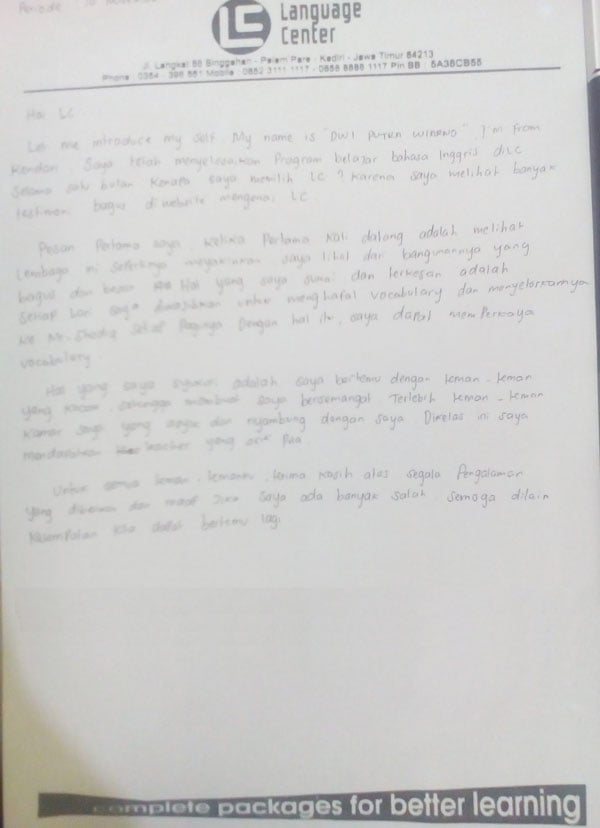 Periode : 10
LC
Language
Center
Jl. Langkai 88 Singgahan - Palem Pare - Kediri - Jawa Timur 64213
Phone : 0354 - 396 551 Mobile : 0852 3111 1117 - 0856 8888 1117 Pin BB : 5A38CB55
Hai LC.
Let me introduce my self. My name is "DWI PUTERI WINENO". I'm From
Kendari. Saya telah menyelesaikan Program belajar bahasa Inggris di LC
Selama satu bulan. Kenapa saya memilih LC ? Karena saya melihat banyak
testimoni bagus di website mengenai LC.
Pesan Pertama saya, ketika Pertama kali datang adalah melihat
Lembaga ini sepertinya meyakinkan saya lihat dari bangunannya yang
bagus dan besar Hal yang saya sukai dan terkesan adalah
Setiap hari saya diwajibkan untuk menghafal vocabulary dan menyetorkannya
ke Mr. setiap Paginya Dengan hal itu, saya dapat memPercaya
vocabulary.
Hal yang saya syukuri adalah saya bertemu dengan teman - teman
yang kocak, sehingga membuat saya bersemangat. Terlebih teman - teman
kamar saya yang asyik dan nyambung dengan saya. Dikelas ini saya
mendapatkan teacher yang asik Pula.
Untuk semua teman - temanku, terima kasih atas segala Pengalaman
yang diberikan dan maaf jika saya ada banyak salah. Semoga dilain
Kesempatan kita dapat bertemu lagi.
complete packages for better learning